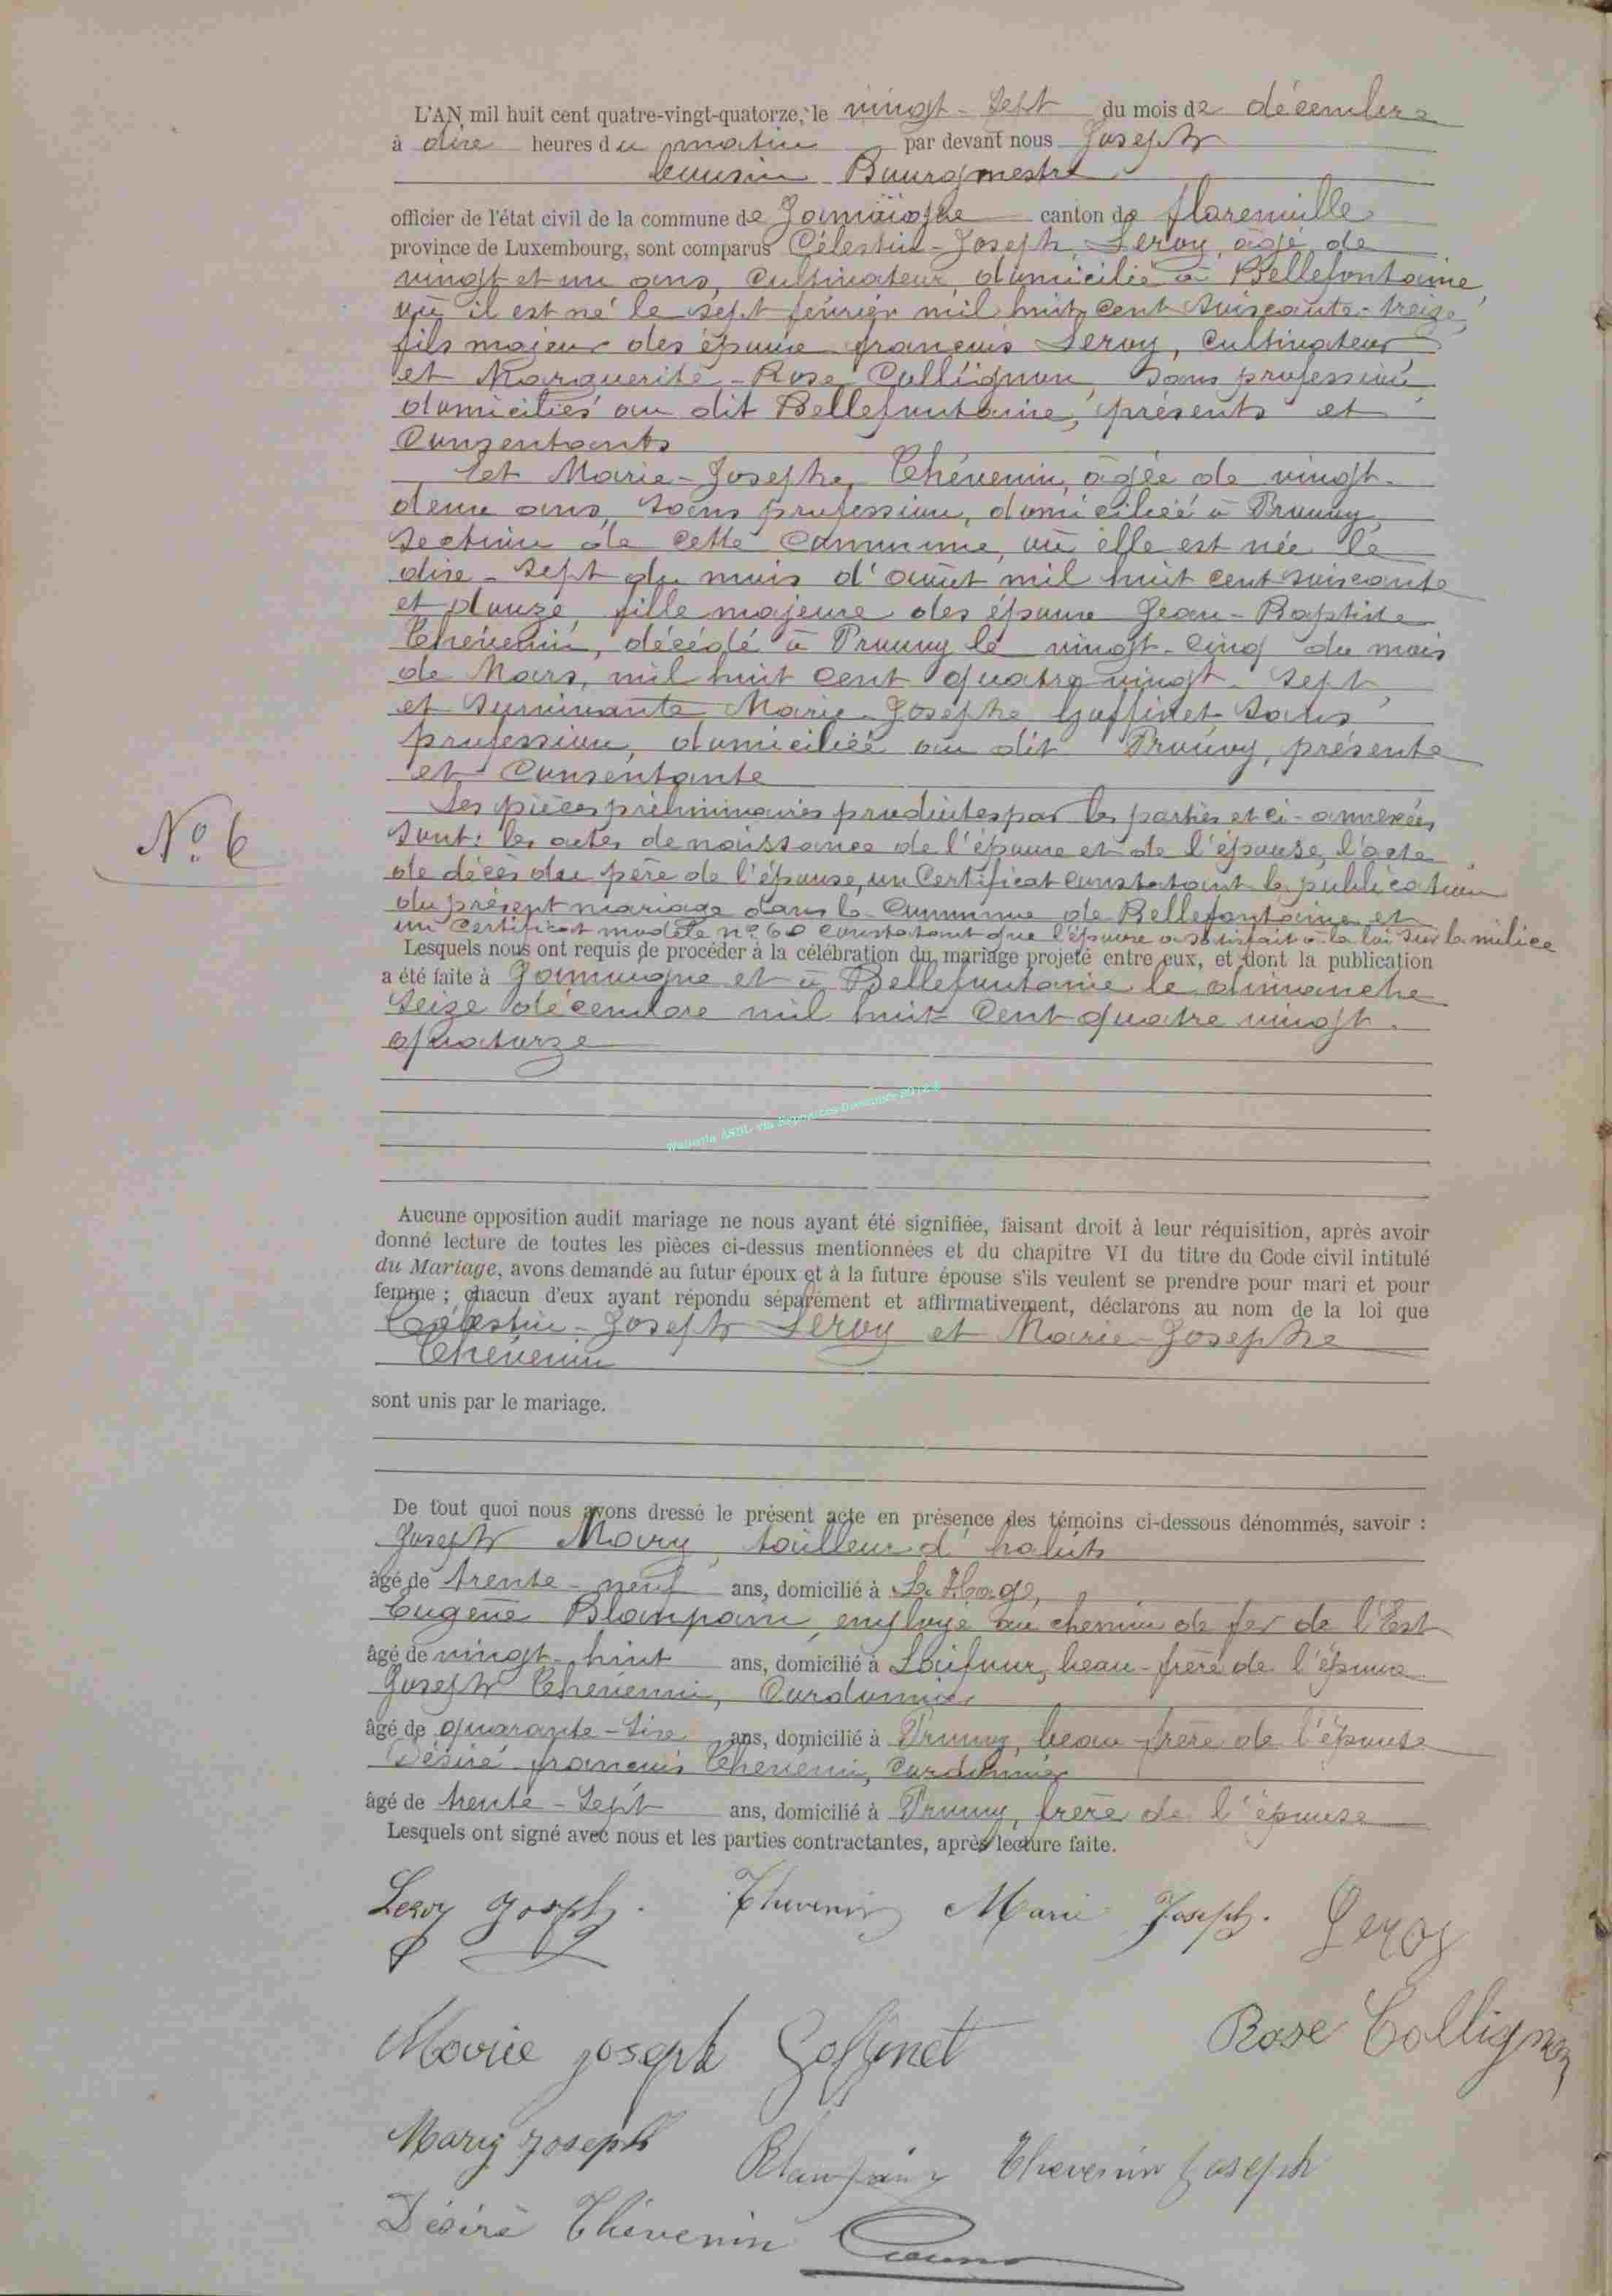 L'AN mil huit cent quatre-vingt-quatorze, le vingt-sept du mois de décembre
à dix heures du matin par devant nous Joseph
Cousin Bourgmestre
officier de l'état civil de la commune de Jamoigne canton de florenville
province de Luxembourg, sont comparus Célestin-Joseph Leroy, âgé de
vingt et un ans, Cultivateur, domicilié à Bellefontaine,
où il est né le sept février mil huit cent soixante-treize,
fils majeur des époux françois Leroy, Cultivateur
et Marguerite-Rose Collignon, sans profession,
domiciliés au dit Bellefontaine, présents et
Consentants
Et Marie-Josephe Thévenin, âgée de vingt-
deux ans, sans profession, domiciliée à Prouvy,
section de cette Commune, où elle est née le
dix-sept du mois d'août mil huit cent soixante
et douze, fille majeure des époux Jean-Baptiste
Thévenin, décédé à Prouvy le vingt-cinq du mois
de Mars, mil huit cent quatre vingt-sept,
et survivante Marie-Josephe Goffinet sans
profession, domiciliée au dit Prouvy, présente
et Consentante
Les pièces préliminaires produites par les parties et ci-annexées
sont: les actes de naissance de l'époux et de l'épouse, l'acte
de décès du père de l'épouse, un Certificat constatant la publication
du présent mariage dans la Commune de Bellefontaine et
un Certificat modèle nº 60 constatant que l'époux a satisfait à la loi sur la milice
Nº 6
Lesquels nous ont requis de procéder à la célébration du mariage projeté entre eux, et dont la publication
a été faite à Jamoigne et à Bellefontaine le dimanche
seize décembre mil huit Cent quatre vingt-
quatorze
Aucune opposition audit mariage ne nous ayant été signifiée, faisant droit à leur réquisition, après avoir
donné lecture de toutes les pièces ci-dessus mentionnées et du chapitre VI du titre du Code civil intitulé
du Mariage, avons demandé au futur époux et à la future épouse s'ils veulent se prendre pour mari et pour
femme ; chacun d'eux ayant répondu séparément et affirmativement, déclarons au nom de la loi que
Célestin-Joseph Leroy et Marie-Josephe
Thévenin
sont unis par le mariage.
De tout quoi nous avons dressé le présent acte en présence des témoins ci-dessous dénommés, savoir :
Joseph Mary, tailleur d'habits
âgé de trente-neuf ans, domicilié à
Eugène Blanpain, employé au chemin de fer de l'Est
âgé de vingt-huit ans, domicilié à beau-frère de l'époux
Joseph Thévenin, Cordonnier
âgé de quarante-six ans, domicilié à Prouvy, beau-frère de l'épouse
Désiré françois Thévenin, Cordonnier
âgé de trente-sept ans, domicilié à Prouvy, frère de l'épouse
Lesquels ont signé avec nous et les parties contractantes, après lecture faite.
Leroy Joseph. Thevenin Marie Joseph. Leroy
Marie joseph Goffinet Rose Collignon
Mary joseph Blanpain Thevenin Joseph
Désiré Thévenin Cousin